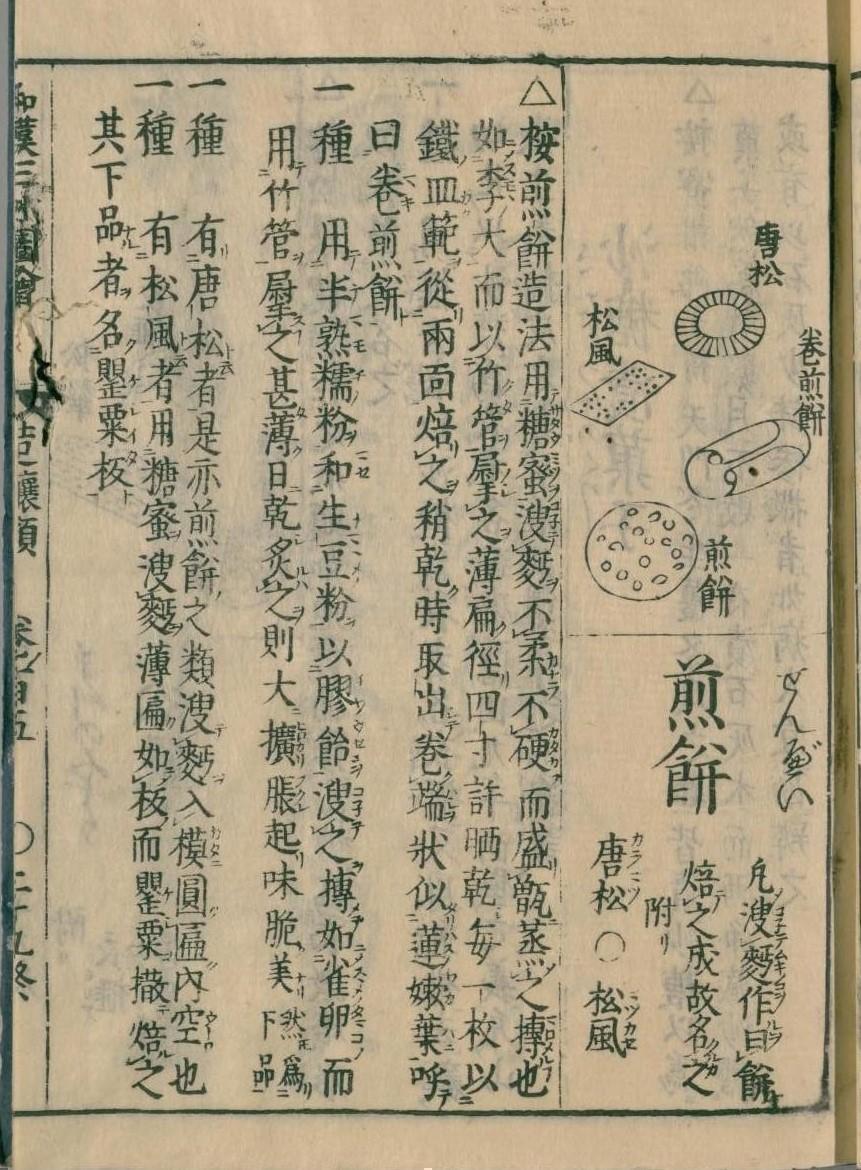 唐松
卷煎餅
松風
煎餅
せんべい
煎餅
凡溲麪作曰餅
焙之成故名之
附リ
唐松 カラマツ ○ 松風 マツカセ
△按煎餅造法用糖蜜溲麪不柔不硬而盛甑蒸之摶也
如李大而以竹管㞠之薄扁徑四寸許晒乾每一枚以
鐵皿範從兩面焙之稍乾時取出卷端狀似蓮嫩葉呼
曰卷煎餅
一種 用半熟糯粉和生豆粉以膠飴溲之摶如雀卵而
用竹管㞠之甚薄日乾炙之則大擴脹起味脆美然爲下品
一種 有唐松者是亦煎餅之類溲麪入模圓匾內空也
一種 有松風者用糖蜜溲麪薄匾如板而罌粟撒焙之
其下品者名罌粟板
和漢三才圖會 造釀類 卷ノ百五 ○二十九終